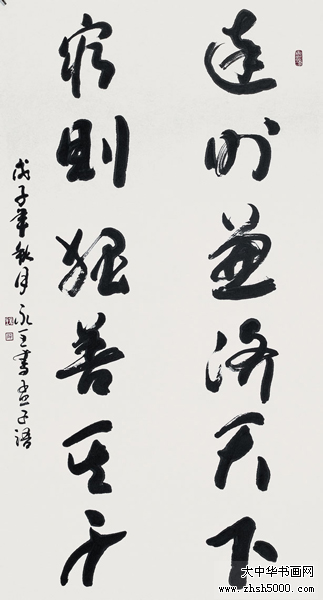 達則兼濟天下
窮則獨善其身
戊子年秋月永王書孟子語
大中华书画网
www.zhsh5000.com